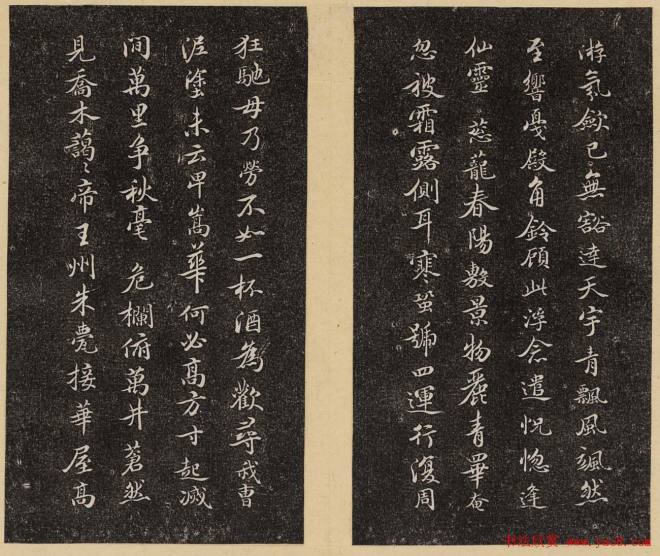 游氣斂已無豁達天宇青飄風颯然
至響戛殿角鈴顧此浮念遣怳惚逢
仙靈 葱蘢春陽敷景物麗青畢奄
忽被霜露側耳寒蛩號四運行復周
狂馳毋乃勞不如一杯酒為歡尋我曹
泥塗未云卑嵩華何必高方寸起滅
間萬里爭秋毫 危欄俯萬井蒼然
見喬木藹々帝王州朱甍接華屋高
www.yac8.com